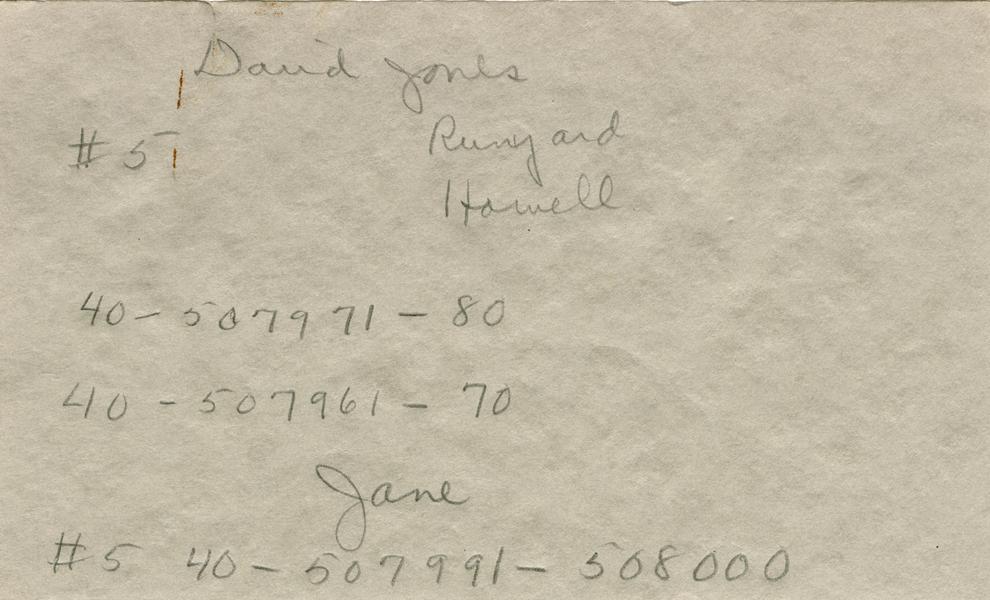 David Jones
#5
Runyard
Howell
40 - 507971 - 80
40 - 507961 - 70
Jane
#5 40 - 507991 - 508000